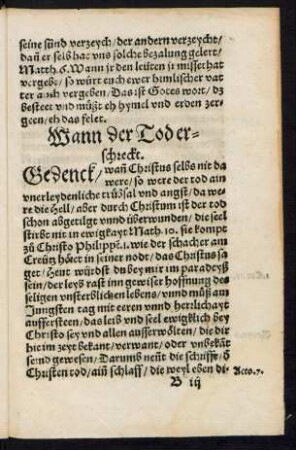 seine sünd verzeych/der andern verzeycht/
dañ er selb hat vns solche bezalung gelert/
Matth. 6. Wann jr den leüten jr missethat
vergebe/ so würt euch ewer himlischer vat
ter auch vergeben/ Das ist Gotes wort/ dz
besteet vnd müßt eh hymel vnd erden zer-
geen/ eh das felet.
Wann der Tod er-
schreckt.
Gedenck/ wañ Christus selbs nit da
were/ so were der tod ain
vnerleydenliche trübsal vnd angst/ da we-
re die Hell/ aber durch Christum ist der tod
schon abgetilgt vnnd überwunden/ die seel
stirbt nit in ewigkayt Math. 10. sie kompt
zů Christo Philipp. 1. wie der schacher am
Creütz höret in seiner nodt/ das Christus sa
get/ Heut würdst du bey mir im paradeyß
sein/ der leyb rast inn gewiser hoffnung des
seligen vnsterblichen lebens/ vnnd můß am
Jungsten tag mit eeren vnnd herrlichayt
aufferstehen/ das leib vnd seel ewigklich bey
Christo sey vnd allen ausserwölten/ die dir
hie im zeyt bekant/ verwant/ oder vnbekãt
seind gewesen/ Darumb neñt die schrifft/ ð
Christen tod/ ain schlaff/ die weyl eben di-
Acto. 7.
B iij